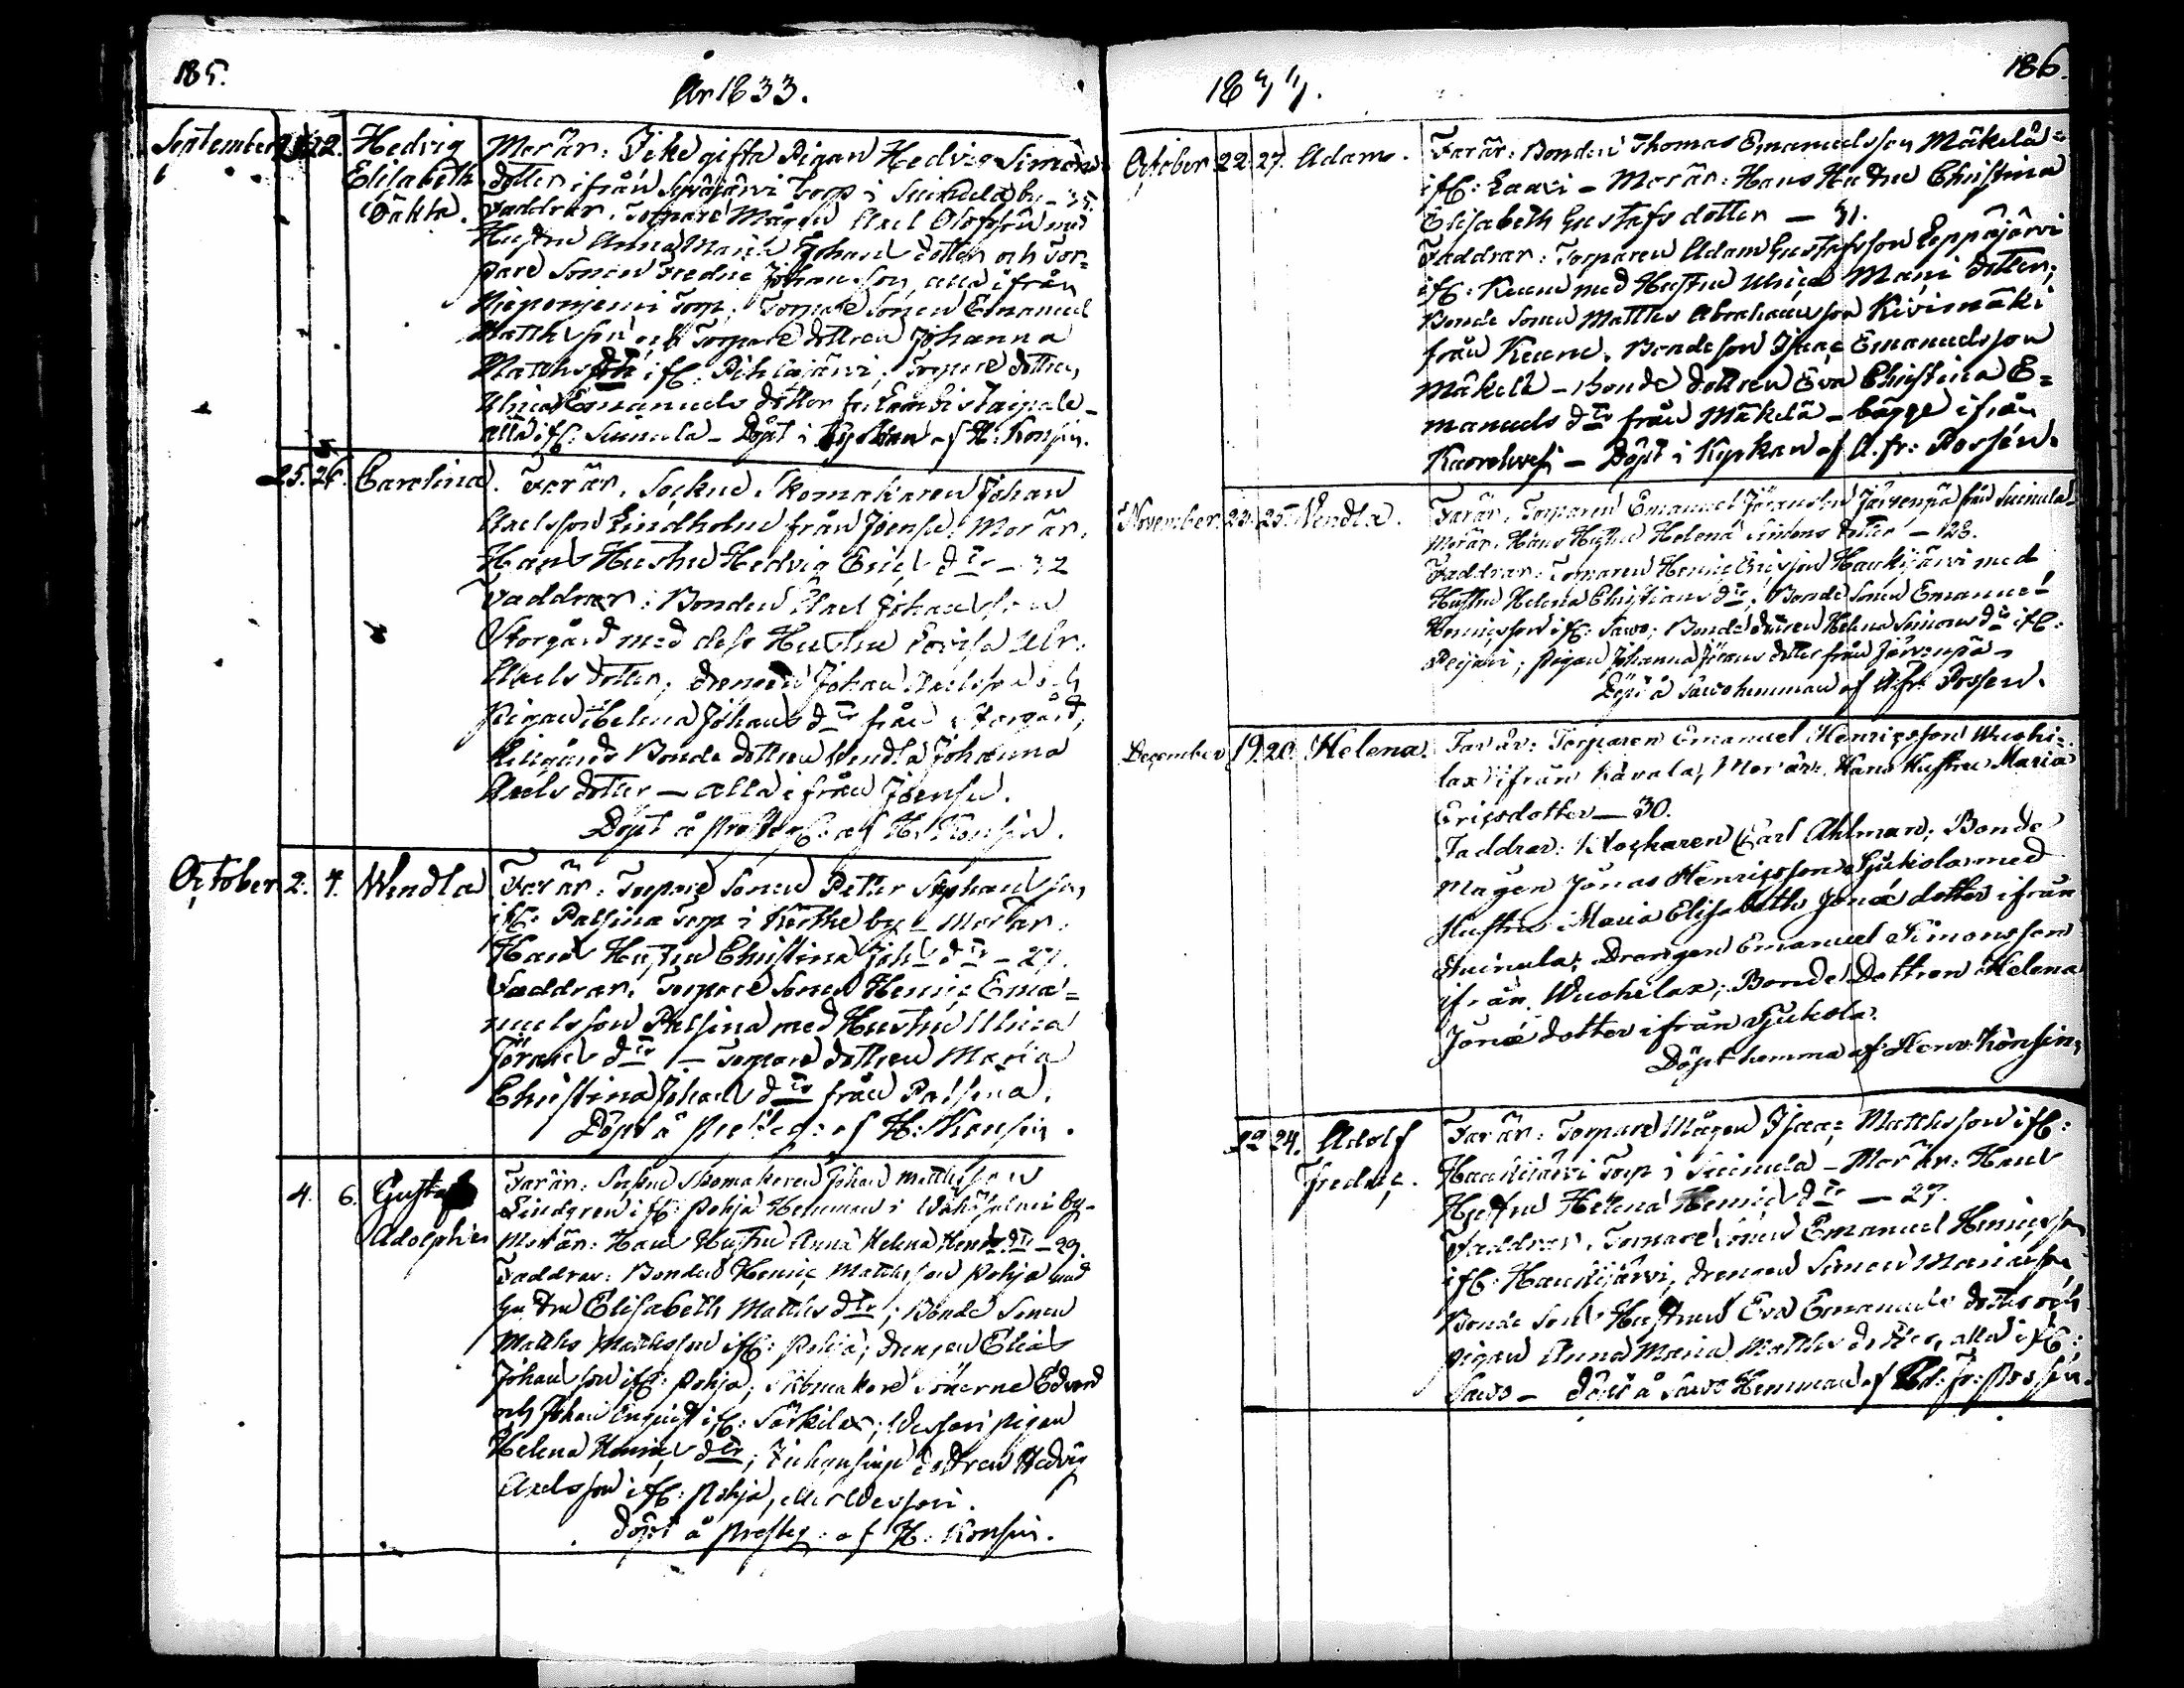 185.
År 1833.
September 21 22. Hedvig Elisabeth Oäkta.
Mor är: Icke gifta Pigan Hedvig Simons
dotter ifrån Syväjärvi Torp i Suinula by – 35.
Faddrar. Torpare Mågen Axel Olofsson med
Hustru Anna Maria Johans dotter och Tor=
pare Sonen Fredric Johansson, alla ifrån
Torp; Torpare Sonen Emanuel
Matthsson och Torpare dottren Johanna
Matths dtr ifr: Pihlajärvi, Torpare dottren
Ulrica Emanuels dotter
alla ifr: Suinula – Döpt i Kyrkan af H. Konsin.
25. 26. Carolina.
Far är. Sockne Skomakaren Johan
Axelsson Lindholm från Joensu. Mor är.
Hans Hustru Hedvig Erics dtr – 32
Faddrar: Bonden Axel Johansson
Storgård med dess Hustru Lovisa Ulr.
Axels dotter; drengen Johan Axelsson och
Pigan Helena Johans dtr från Storgård,
Lillgårds Bonde dottren Wendla Johanna
Axels dotter – alla ifrån Joensu.
Döpt å Prestg: af H. Konsin.
October 2. 4. Wendla
Far är: Torpare Sonen Petter Stephansson
ifr: Palsina Torp i by – Mor är:
Hans Hustru Christina Joh: dtr – 27.
Faddrar. Torpare Sonen Henric Ema=
nuelsson Palsina med Hustru Ulrica
Görans dtr – Torpare dottren Maria
Christina Johans dtr från Palsina.
Döpt å Presteg: af H: Konsin.
4. 6. Gustaf Adolphus
Far är: Sockne Skomakaren Johan Matthsson
Lindgren ifr: Pohja Hemman i by –
Mor är: Hans Hustru Anna Helena Henr: dtr – 29.
Faddrar: Bonden Henric Matthsson Pohja med
Hustru Elisabeth Matths dtr; Bonde Sonen
Matths Matthsson ifr: Pohja; drengen Elias
Johansson ifr: Pohja; Skomakare Sönerne Edvard
och Johan Enqvist ifr: Särkilax; pigan
Helena Henrics dtr; dottren Hedvig
Axelsson ifr: Pohja,
Döpt å Presteg: af H: Konsin.
186.
1833.
October 22. 27. Adam.
Far är: Bonden Thomas Emanuelsson Mäkelä=
ifr: – Mor är: Hans Hustru Christina
Elisabeth Gustafs dotter – 31.
Faddrar: Torparen Adam Gustafsson Leppäjärvi
ifr: med Hustru Ulrica Matts dotter;
Bonde Sonen Matths Abrahamsson Kivimäki
från Bonde son Isaac Emanuelsson
Mäkelä – Bonde dottren Eva Christina E=
manuels dtr från Mäkelä – bägge ifrån
Kuorehvesi – Döpt i Kyrkan af A. Fr: Possén.
November. 23. 25. Wendla.
Far är. Torparen Emanuel Göransson Järvenpä från Suinula
Mor är. Hans Hustru Helena Simons dotter – 28.
Faddrar: Torparen Henric Ericsson Haukijärvi med
Hustru Helena Christians dtr; Bonde Sonen Emanuel
Henricsson ifr: Sawo; Bonde dottren Helena Simons dtr ifr:
pigan Johanna Görans dotter från Järvenpä –
Döpt å Sawo hemman af A. Fr: Possén.
December 19. 20. Helena.
Far är: Torparen Emanuel Henricsson Wuohi=
lax ifrån Kavala, Mor är: Hans Hustru Maria
Ericsdotter – 30.
Faddrar: Klockaren Carl Ahlman; Bonde
Mågen Jonas Henricsson Jukola med
Hustru Maria Elisabeth Jonæ dotter ifrån
Suinula; Drengen Emanuel Simonsson
ifrån Wuohilax; Bonde Dottren Helena
Jonæ dotter ifrån Jukola.
Döpt hemma af Henr: Konsin.
22 24. Adolf Fredric.
Far är: Torpare Mågen Isaac Matthsson ifr:
Haukijärvi Torp i Suinula – Mor är: Hans
Hustru Helena Henrics dtr – 27.
Faddrar. Torpare Sonen Emanuel Henricsson
ifr: Haukijärvi, drengen Simon
Bonde Sons Hustrun Eva Emanuels dotter och
pigan Anna Maria Matths dotter, alla ifr:
Sawo – döpt å Sawo Hemman af Ad: Fr: Possén.